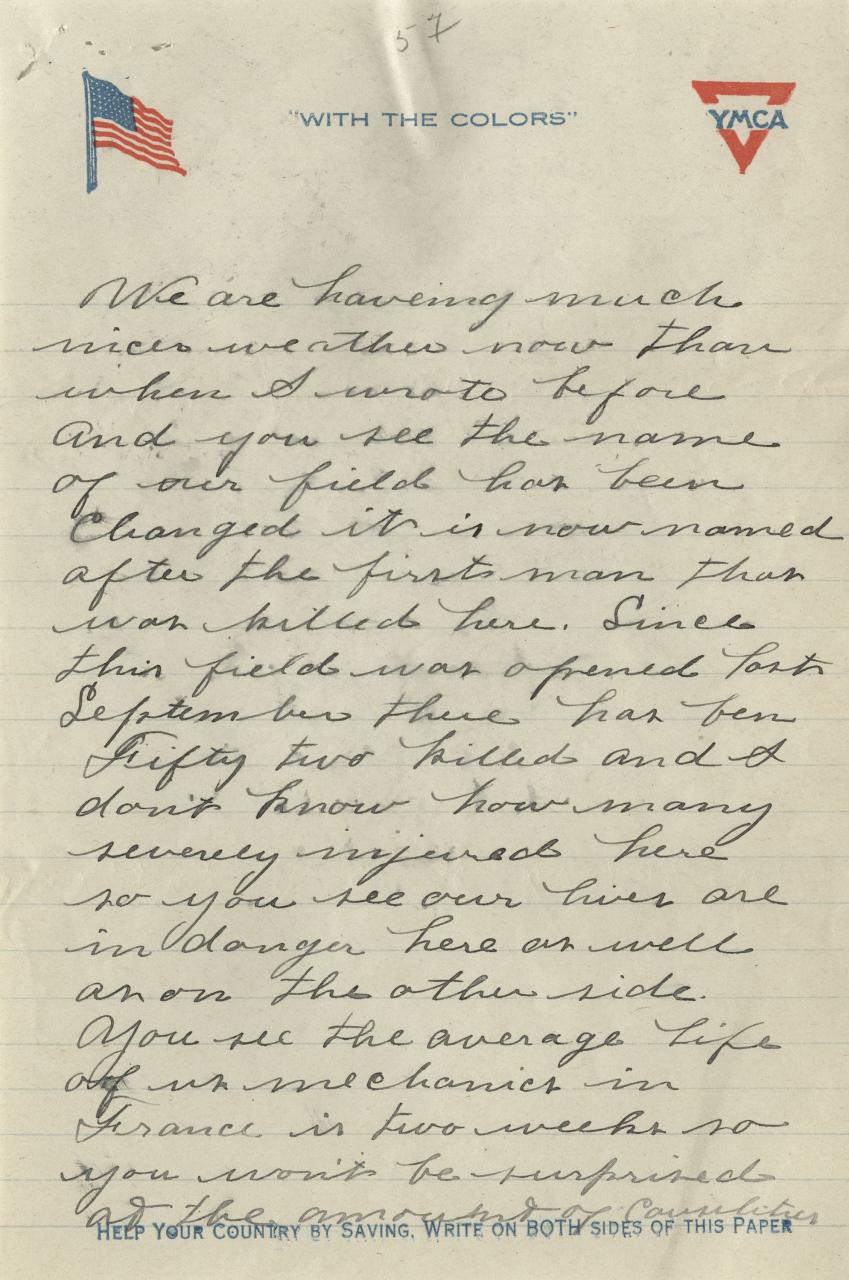 57
"WITH THE COLORS"
YMCA
We are haveing much
nicer weather now than
when I wrote before
And you see the name
of our field has been
Changed it is now named
after the first man that
was killed here. Since
this field was opened last
September there has ben
Fifty two killed and I
don't know how many
severely injured here
so you see our lives are
in danger here as well
as on the other side.
You see the average life
of us mechanics in
France is two weeks so
you won't be surprised
at the amount of
HELP YOUR COUNTRY BY SAVING, WRITE ON BOTH SIDES OF THIS PAPER